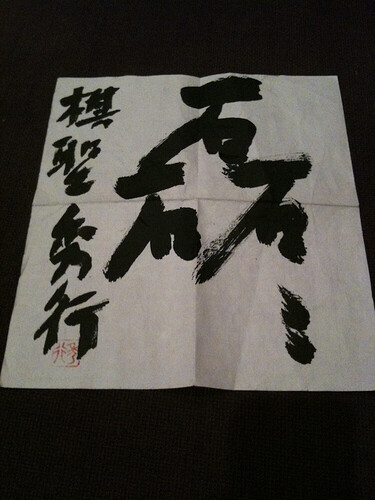 磊々
棋聖秀行